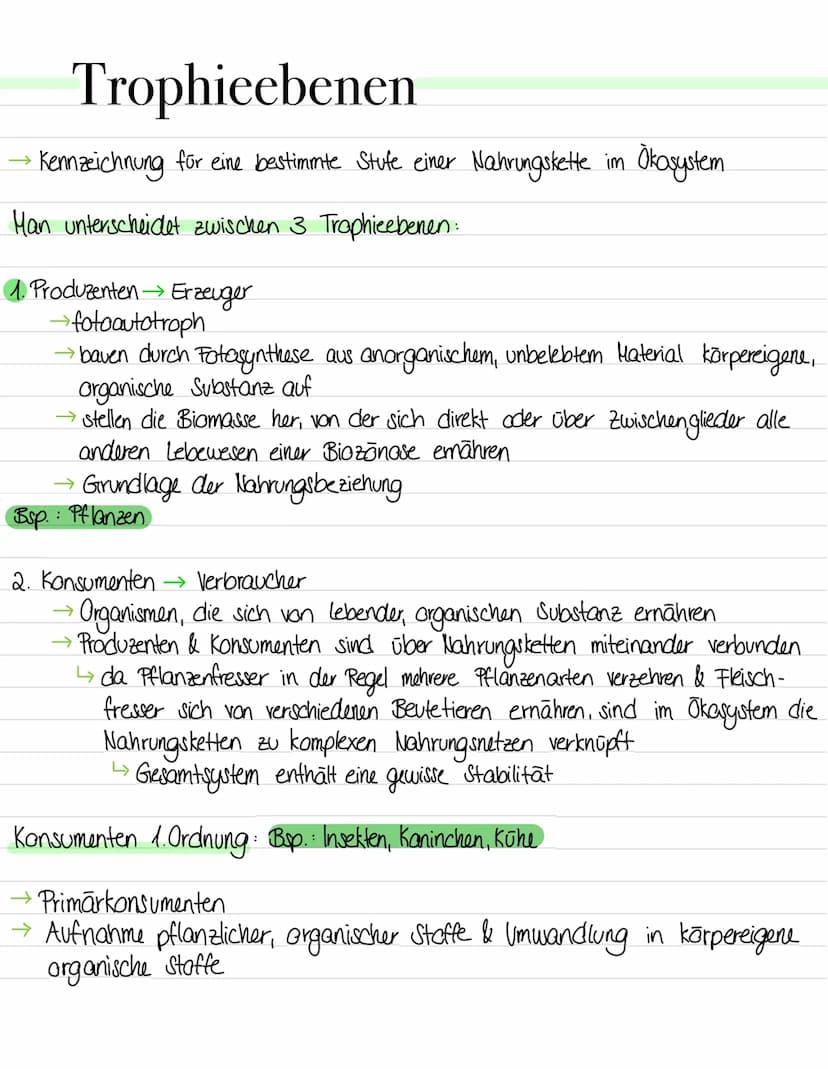 Trophieebenen
→ Kennzeichnung für eine bestimmte Stufe einer Nahrungskette im Ökosystem
Man unterscheidet zwischen 3 Trophieebenen:
1. Produzenten → Erzeuger
→ fotoautotroph
→ bauen durch Fotosynthese aus anorganischem, unbelebtem Material körpereigene,
organische Substanz auf
→ stellen die Biomasse her, von der sich direkt oder über Zwischenglieder alle
anderen Lebewesen einer Biozönose ernähren
→ Grundlage der Nahrungsbeziehung
Bsp.: Pflanzen
2. Konsumenten → Verbraucher
→ Organismen, die sich von lebender, organischen Substanz ernähren
→ Produzenten & Konsumenten sind über Nahrungsketten miteinander verbunden
↳ da Pflanzenfresser in der Regel mehrere Pflanzenarten verzehren & Fleisch-
fresser sich von verschiedenen Beutetieren ernähren, sind im Ökosystem die
Nahrungsketten zu komplexen Nahrungsnetzen verknüpft
↳ Gesamtsystem enthält eine gewisse Stabilität
Konsumenten 1.Ordnung: Bsp.: Insekten, Kaninchen, Kühe
→ Primärkonsumenten
→ Aufnahme pflanzlicher, organischer Stoffe & Umwandlung in körpereigene
organische Stoffe